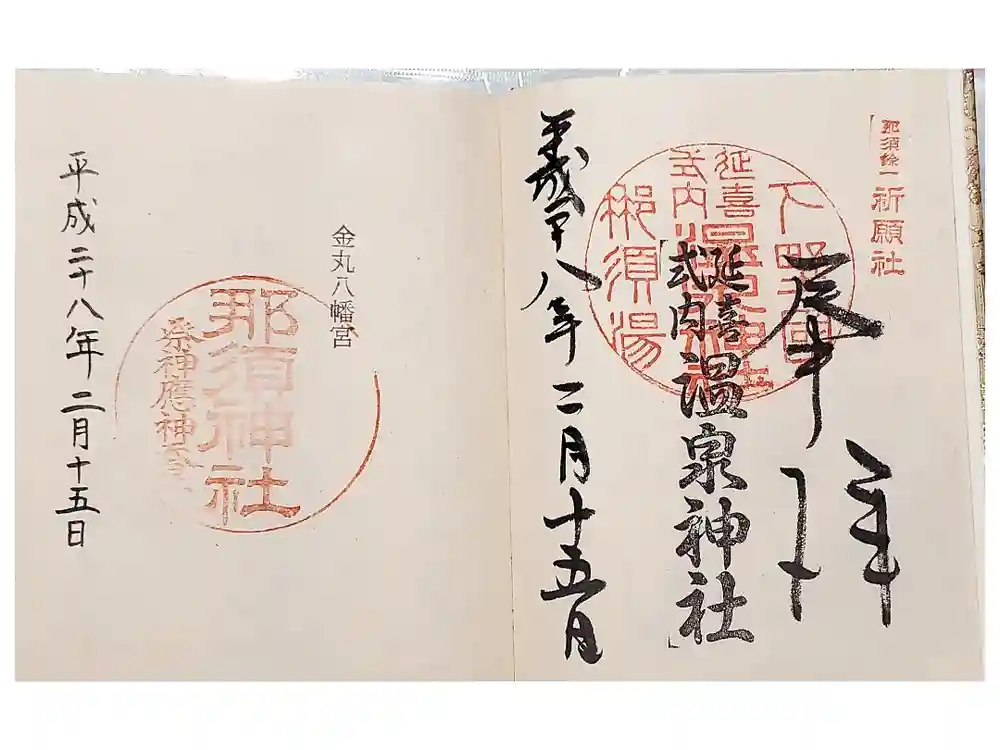 那須餘一
祈願社
奉拝
下野国
延喜
式内
温泉神社
那須湯
延喜
式内
温泉神社
二十八年二月十五日
金丸八幡宮
那須神社
祭神應神天
平成二十八年二月十五日